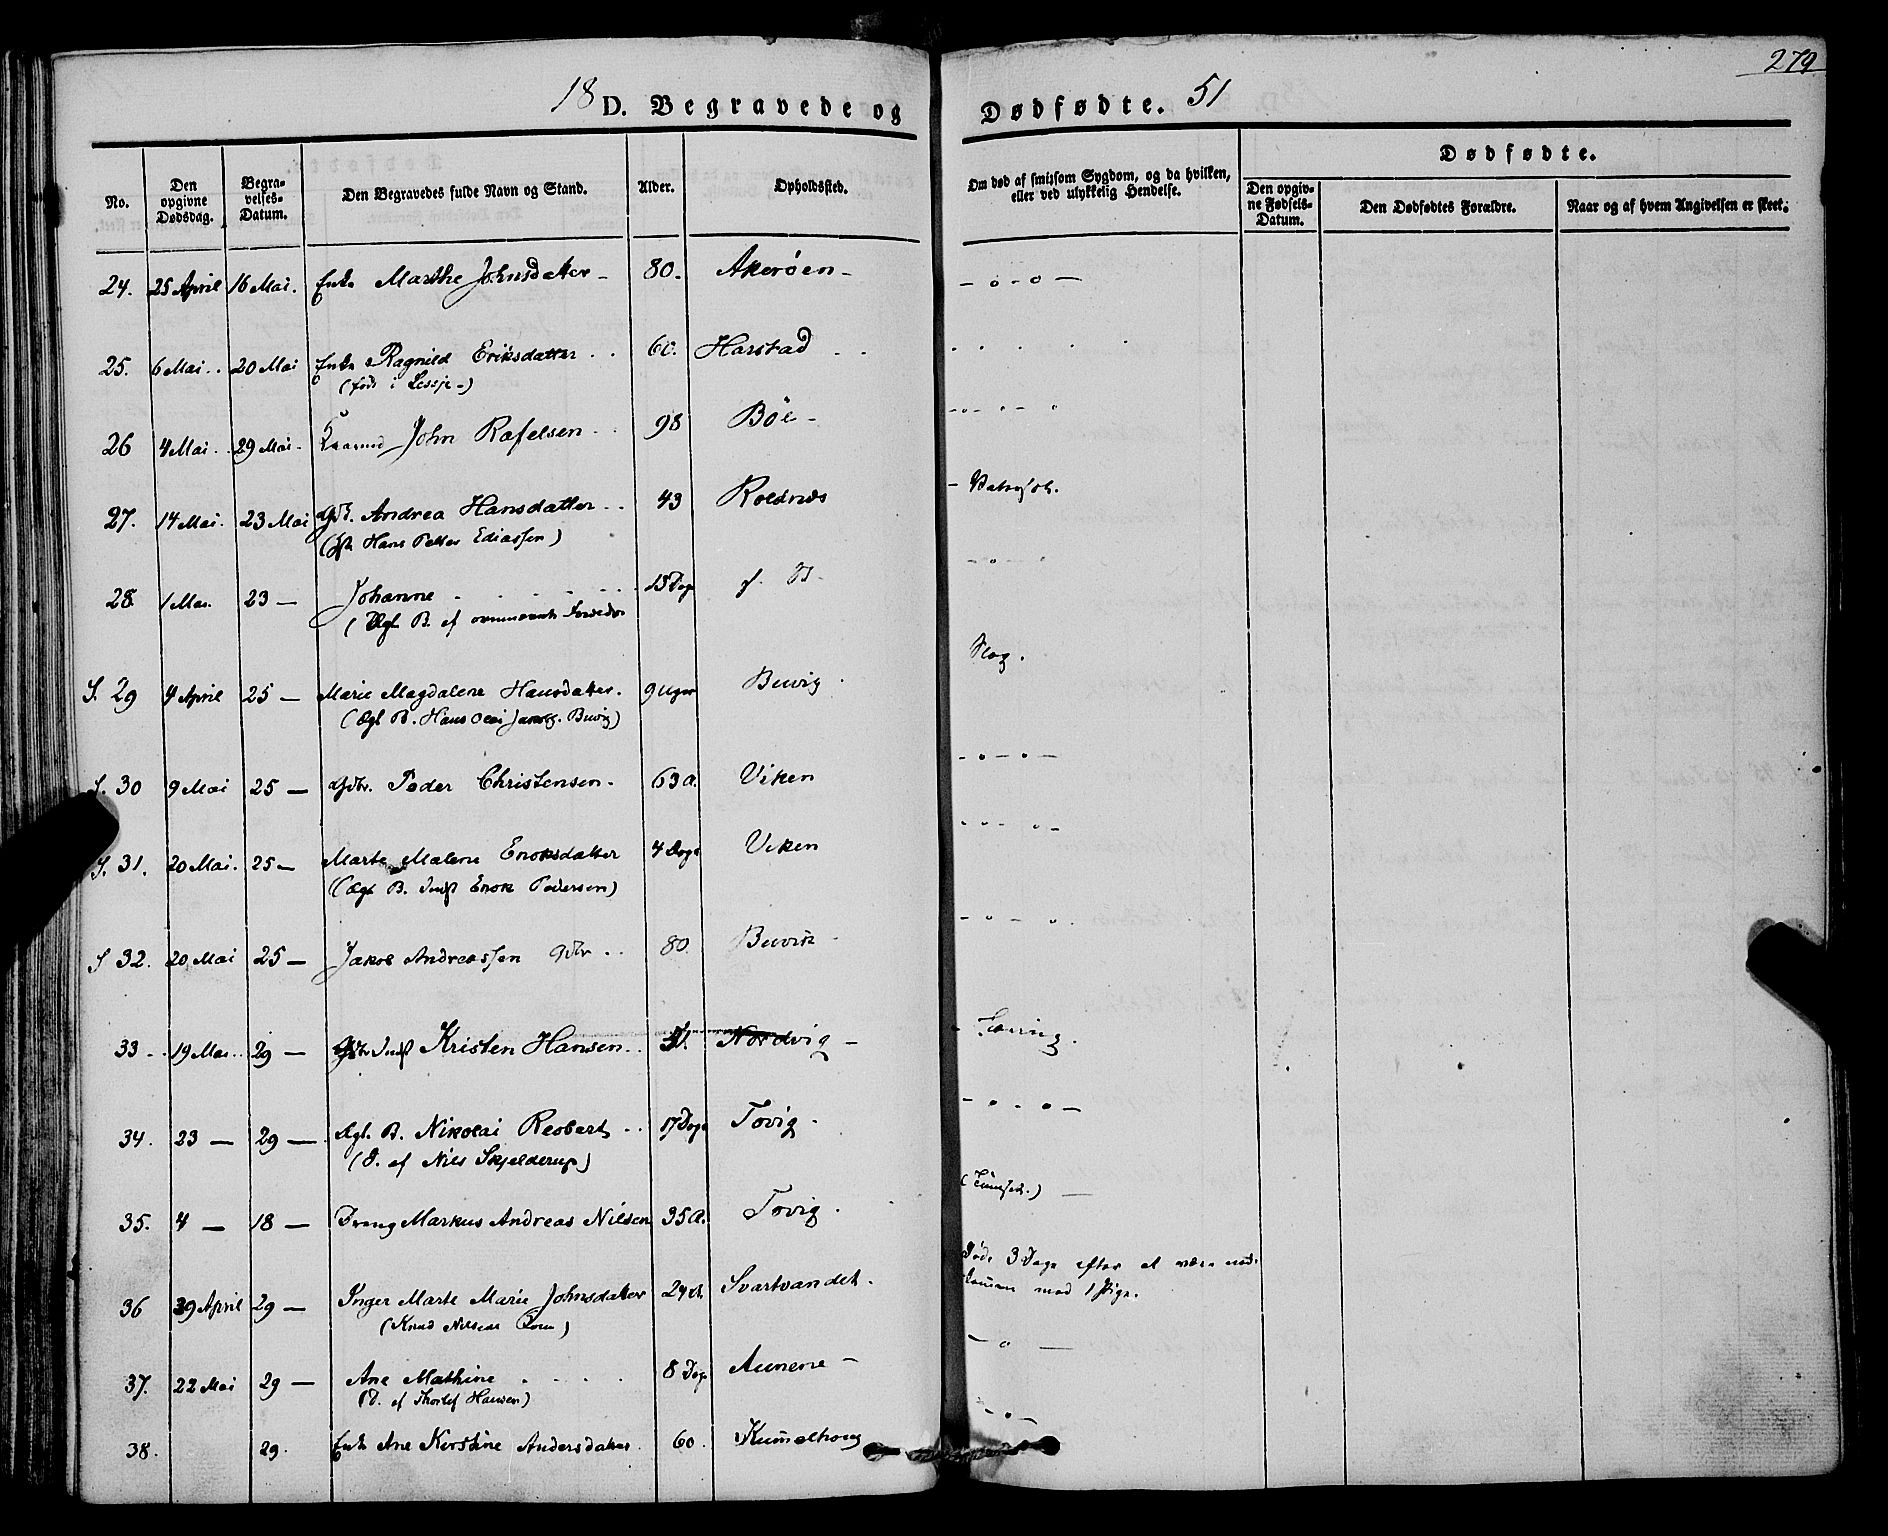 279
18 D. Begravede og Dødfødte. 51
Dødfødte.
No.
Den opgivne Dødsdag.
Begravelses-Datum.
Den Begravedes fulde Navn og Stand.
Alder.
Opholdssted.
Om død af smitsom Sygdom, og da hvilken, eller ved ulykkelig Hendelse.
Den opgivne Fødsels-Datum.
Den Dødfødtes Forældre.
Naar og af hvem Angivelsen er skeet.
24. 25 April 16 Mai. Enke Marthe Johnsdatter - 80. Akerøen - - o - o -
25. 6 Mai .. 20 Mai Enke Ragnild Eriksdatter .. 60. Harstad
(født i Lessje -)
26 4 Mai .. 29 Mai - John Rafelsen .. 98 Böe -
27. 14 Mai. 23 Mai Andrea Hansdatter .. 43 Roldnæs - 
(Hans Petter Ediassen)
28. 1 Mai. 23 - Johanne 15 Dage
(Ægt. B. af Forældre
S. 29 4 April 25 - Marie Magdalene Hansdatter. 9 Uger Buvig
(Ægt B. Hans Jakobs. Buvig)
S. 30 9 Mai 25 - Gdbr. Peder Christensen - 63 A. Viken - o - o -
S. 31. 20 Mai. 25 - Marte Malene Enoksdatter 4 Dage Viken
(Ægt B. Indst Enok Pedersen)
S 32. 20 Mai 25 - Jakob Andreassen Gdbr .. 80. Buvik -
33 - . 19 Mai .. 29 - Indst Kristen Hansen .. Nordvig -
34. 23 - 29 - Ægt. B. Nikolai Reobert .. 17 Dage Tovig - - o - o -
(S. af Niels Skjelderup)
35. 4 - 18 - Dreng Markus Andreas Nilsen 35 A. Tovig.
36 29 April 29 - Inger Marte Marie Johnsdatter 24 A. Svartvandet - Døde 3 Dage efter at være ned-
kommen med 1 Pige.
(Knud Nilsens Kone)
37. 22 Mai 29 - Ane Mathine 8 Dage Aunene - - o -
(D. af Thorlef Hansen)
38. 29. Enke Ane Kerstine Andersdatter. 60. Kumelhoug - o -